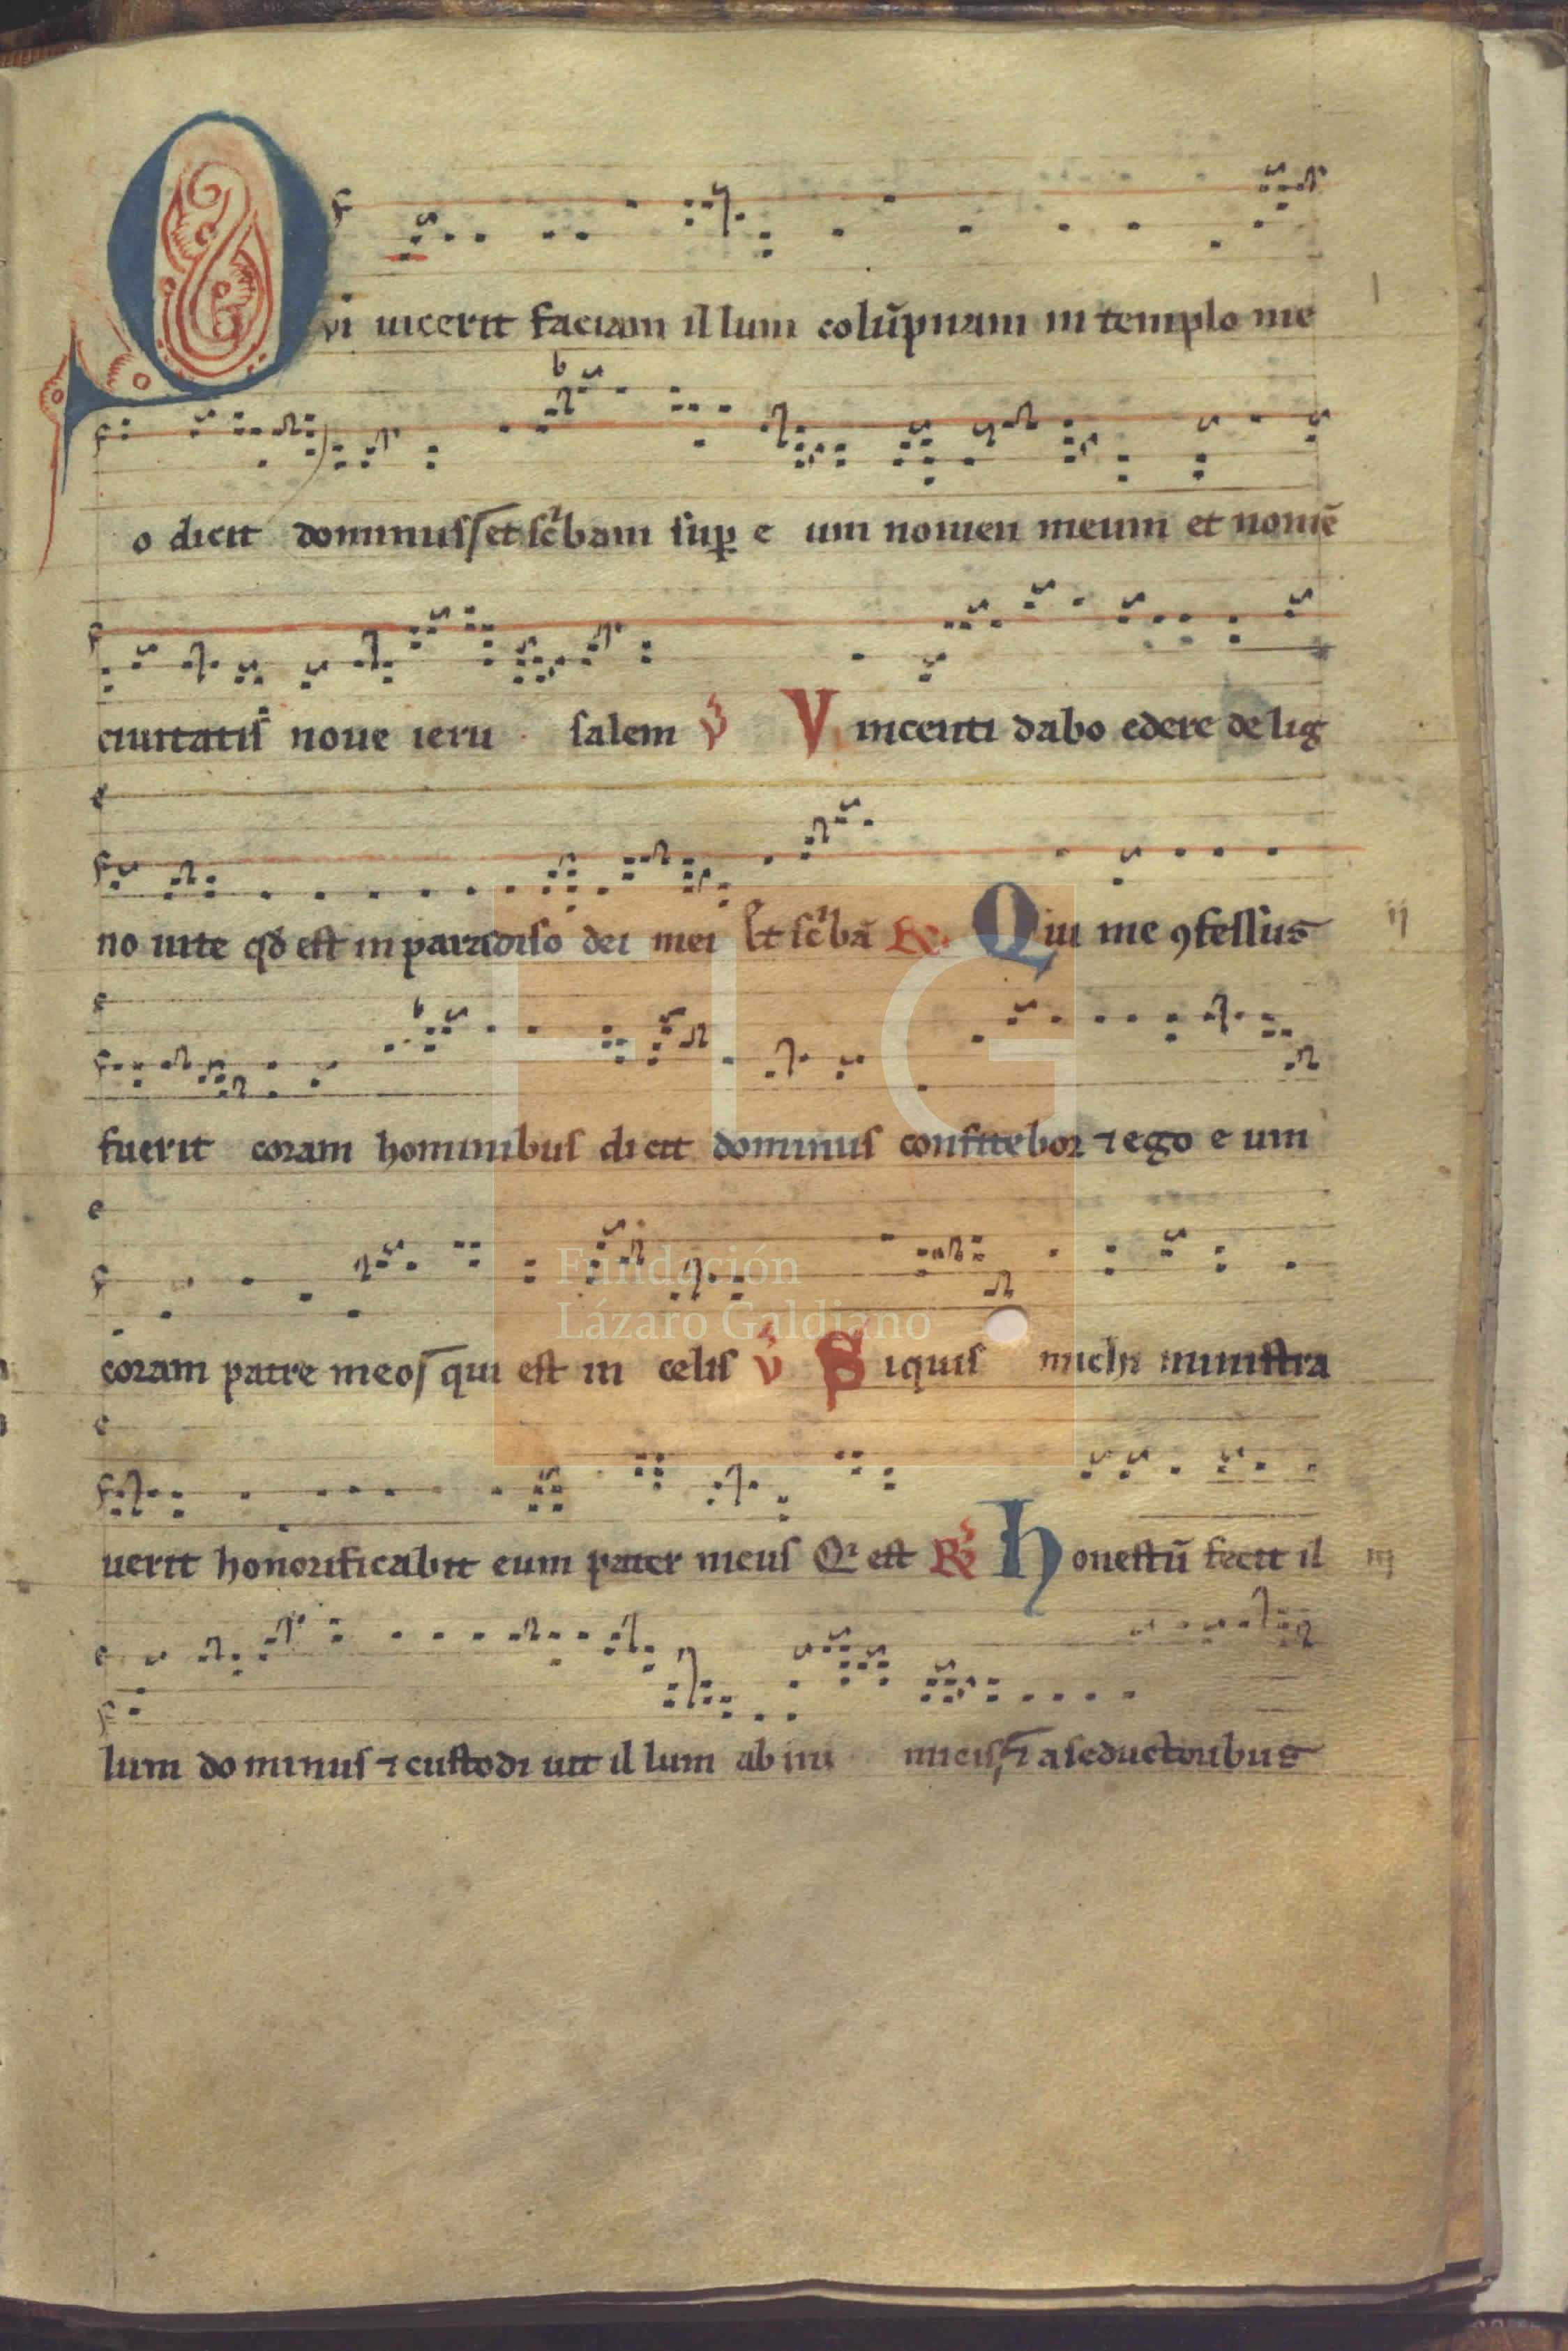 Qvi uicerit faciam il lum colūpnam in templo me
I
o dicit dominus et sc̛bam sup̱ e um nomen meum et nomē
ciuitatis noue ieru salem V̛ Vincenti dabo edere de lig
no uite qd̄ est in paradiso dei mei Et sc̛bā R̛. Qui me ꝯfessus
ij
fuerit coram hominibus dicit dominus confitebor ⁊ ego e um
coram patre meo qui est in celis V̛ Siquis michi ministra
uerit honorificabit eum pater meus Q̛ est R̛ Honestū fecit il
iij
lum do minus ⁊ custodi uit il lum ab ini micis ⁊ a seductoribus
FLG
Fundación
Lázaro Galdiano